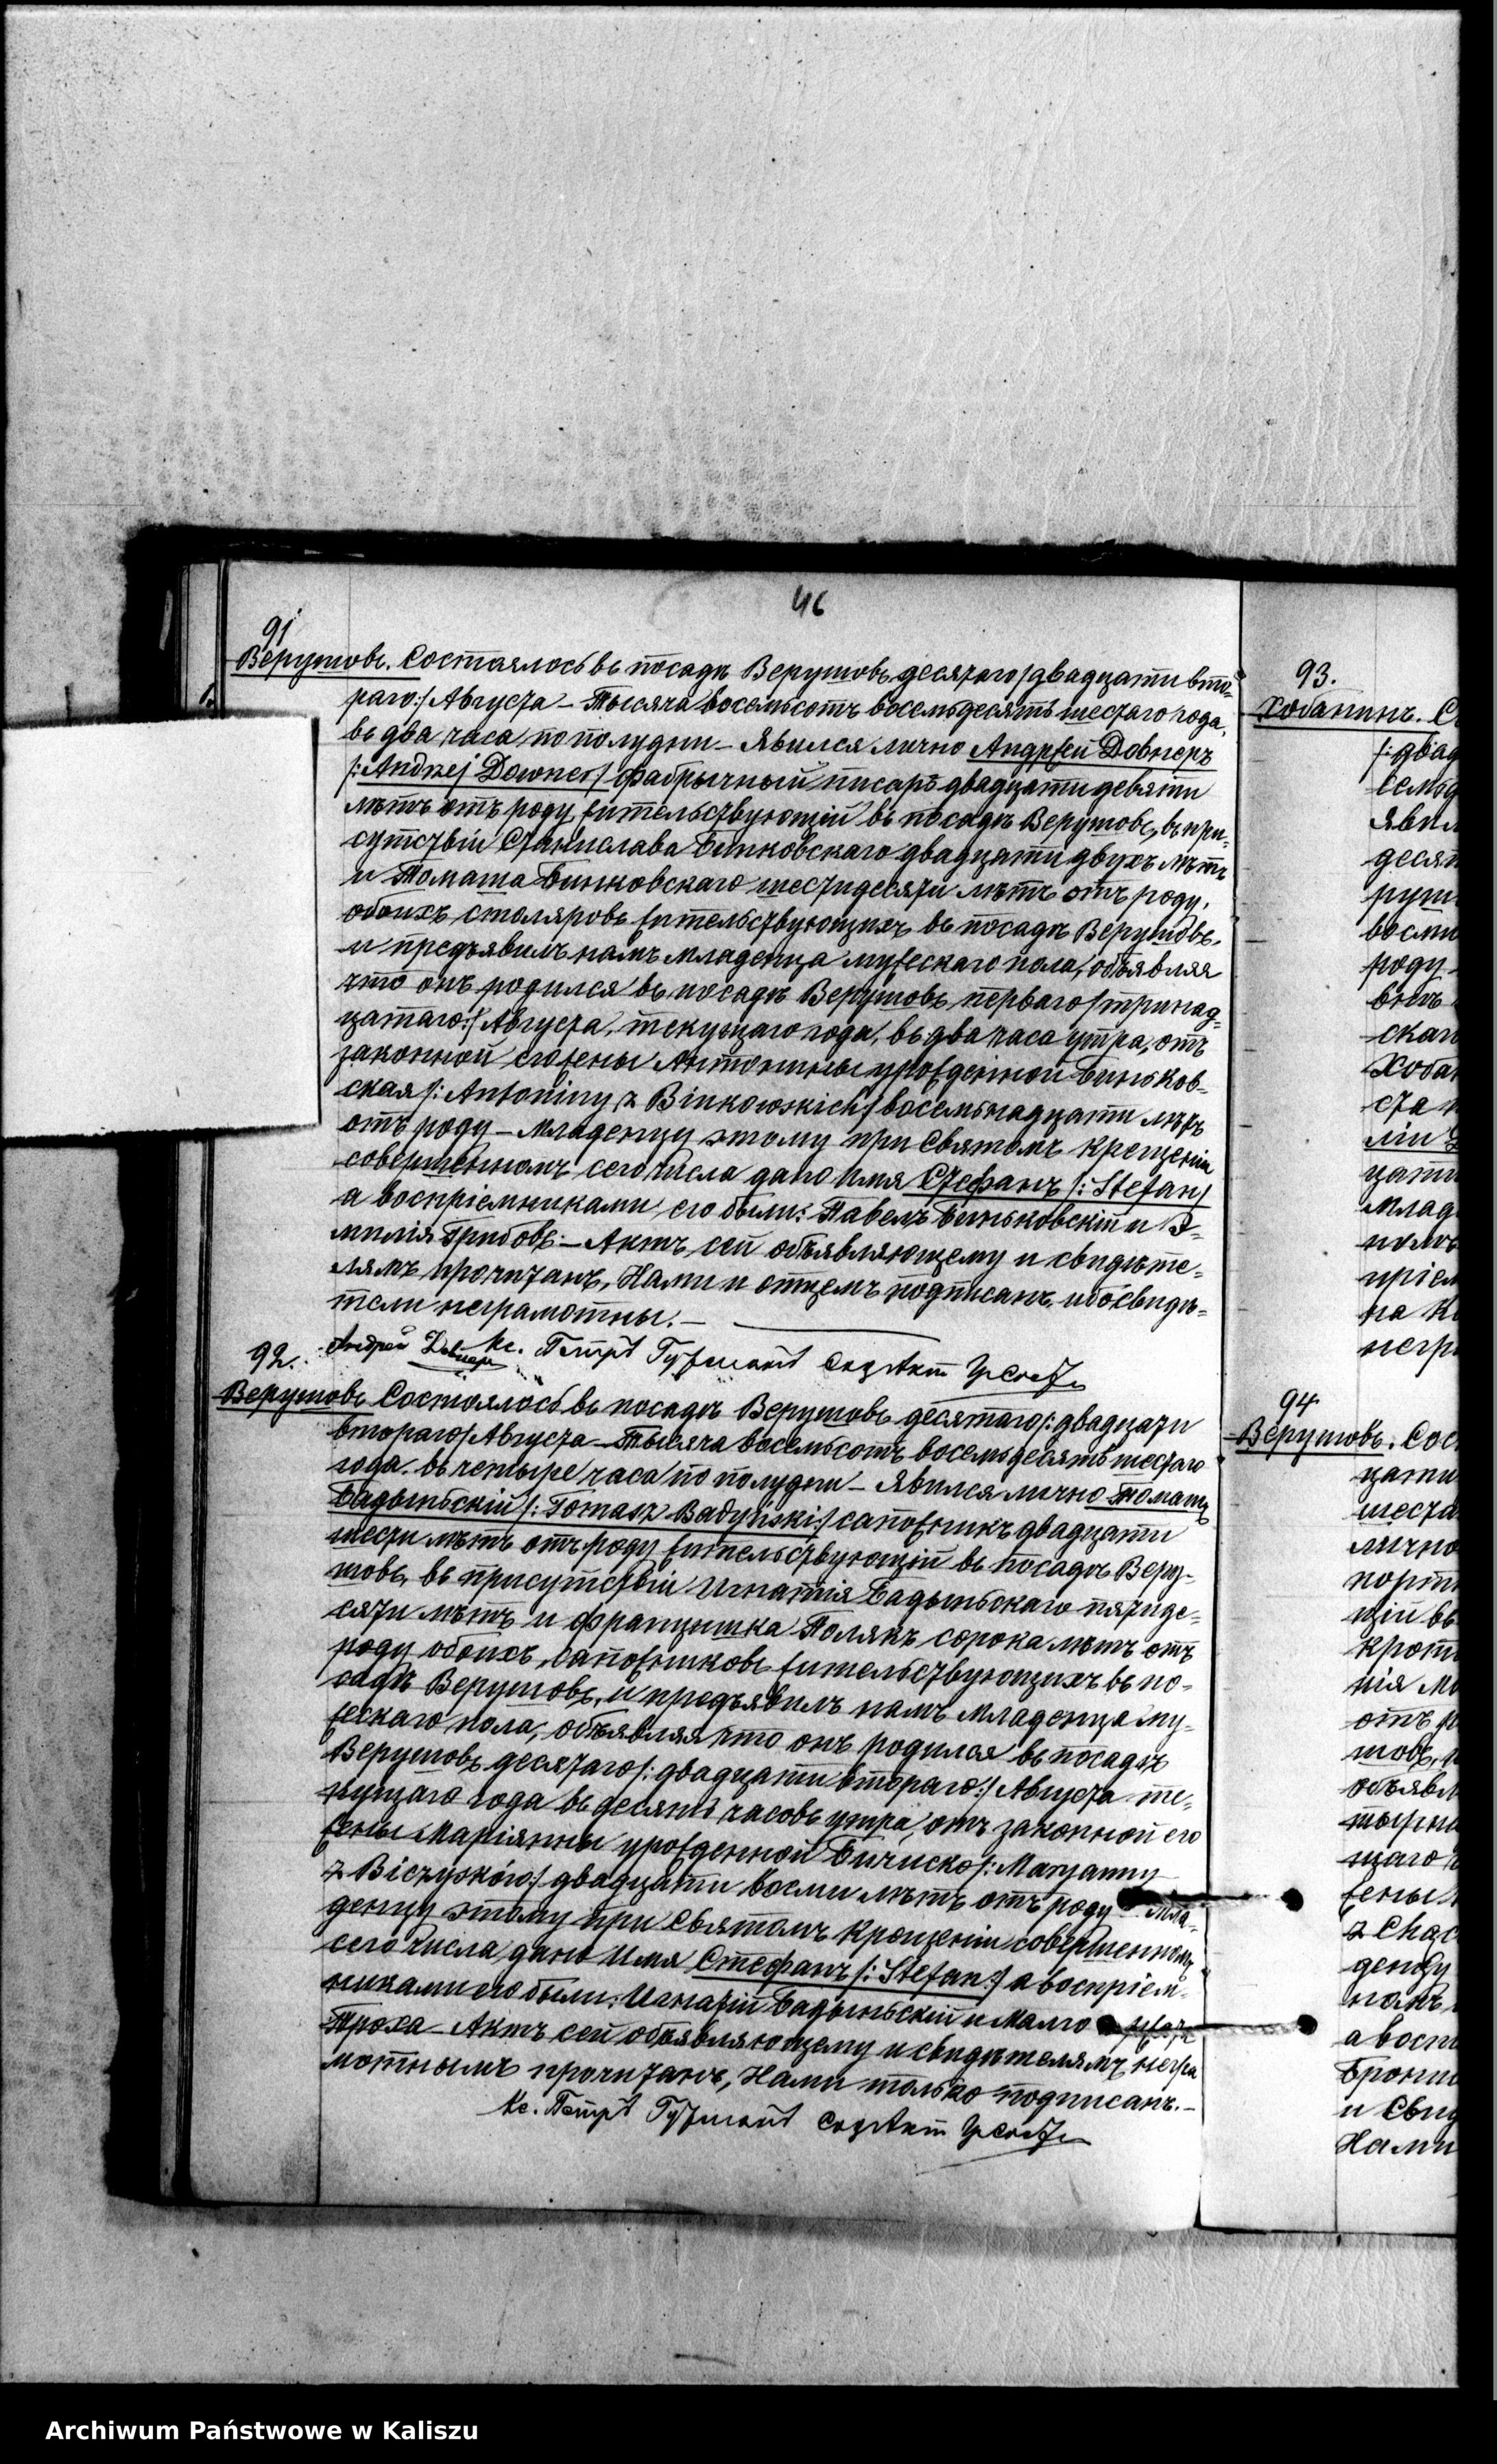 46
91
Верушовъ. Состоялось въ посадѣ Верушовѣ десятаго /двадцати вто-
раго:/ Августа – Тысяча восемьсотъ восемьдесятъ шестаго года,
въ два часа по полудни – Явился лично Андржей Довнеръ
/:Andrzej Downer/ фабрычный писарь двадцати девяти
лѣтъ отъ роду, жительствующій въ посадѣ Верушовѣ, въ при-
сутствіи Станислава Бинковскаго двадцати двухъ лѣтъ
и Томаша Бинковскаго шестидесяти лѣтъ отъ роду,
обоихъ столяровъ жительствующихъ въ посадѣ Верушовѣ,
и предъявилъ намъ младенца мужескаго пола, объявляя
что онъ родился въ посадѣ Верушовѣ перваго /тринад-
цатаго:/ Августа, текущаго года, въ два часа утра, отъ
законной его жены Антонины урожденной Биньков-
ская /: Antoniny z Binkowskich:/ восемьнадцати лѣтъ
отъ роду – Младенцу этому при Святомъ Крещеніи
совершенномъ сего числа дано Имя Стефанъ /: Stefan/
а воспріемниками его были: Павелъ Биньковскій и Э-
милія Грибовъ: – Актъ сей объявляющему и свидѣте-
лямъ прочитанъ, Нами и отцемъ подписанъ, ибо свидѣ-
тели неграмотны. –
Андрей Довнеръ Кс. Петръ
92.
Верушовъ Состоялось въ посадѣ Верушовѣ десятаго /: двадцати
втораго/ Августа – Тысяча восемьсотъ восемьдесятъ шестаго
года, въ четыре часа по полудни – Явился лично Томашъ
Бадыньскій /: Tomasz Badyński:/ сапожникъ двадцати
шести лѣтъ отъ роду жительствующій въ посадѣ Веру-
шовѣ, въ присутствіи Игнатія Бадыньскаго пятиде-
сяти лѣтъ и Францишка Полякъ сорока лѣтъ отъ
роду обоихъ, сапожниковъ жительствующихъ въ по-
садѣ Верушовѣ, и предъявилъ намъ младенца му-
жескаго пола, объявляя что онъ родился въ посадѣ
Верушовѣ десятаго /: двадцати втораго:/ Августа те-
кущаго года въ десять часовъ утра, отъ законной его
жены Маріянны урожденной Бичиско /: Maryanny
z Biczysków:/ двадцати восми лѣтъ отъ роду – Мла-
денцу этому при Святомъ Крещеніи совершенномъ
сего числа, дано Имя Стефанъ /: Stefan:/ а воспріем-
никами его были: Игнатій Бадыньскій и Малго
Троха – Актъ сей объявляющему и свидѣтелямъ негра
мотнымъ прочитанъ, Нами только подписанъ. –
Кс. Петръ
93.
Хобанинъ. С
/: двад
семьд
явил
десят
руш
восми
роду
скаг
Хоба
ста
цати
Млад
намъ
пріем
на К
негр
94
Верушовъ. Сос
цати
шеста
лично
порт
щій въ
крот
нія М
отъ р
шовѣ,
объявл
щаго
жены
z Chac
денцу
а восп
Брони
и Сви
Нами
Archiwum Państwowe w Kaliszu